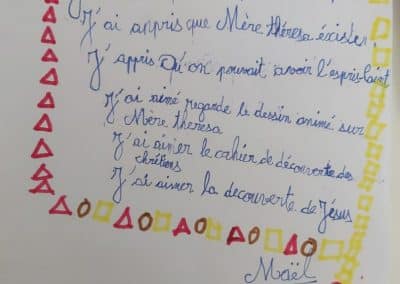 J'ai appris que Mère thérèsa éxister.
J'appris Qu'on pouvait avoir l'espris-saint
J'ai aimé regarde le dessin animé sur
Mère theresa
J'ai aimer le cahier de découverte des
chrétiens
J'ai aimer la decouverte de Jésus
Maël